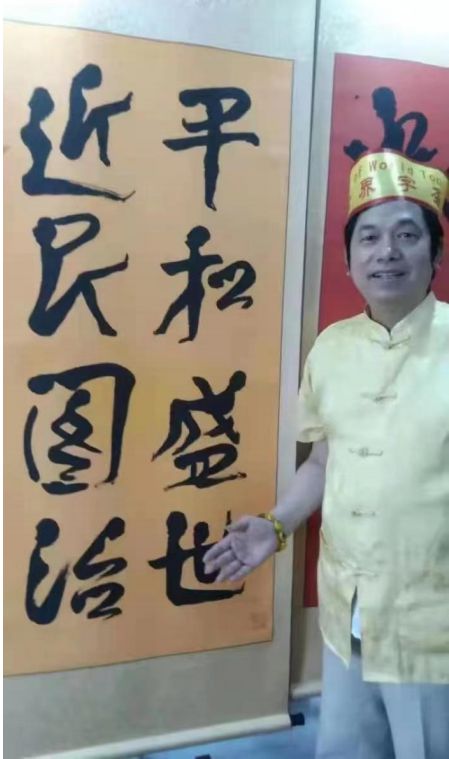 平和盛世
近民圖治
of World
界字